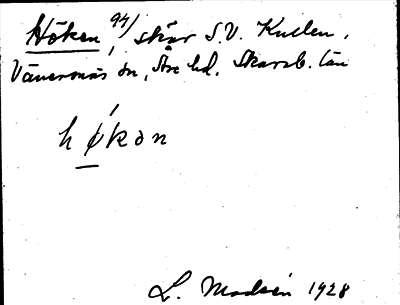 Höken, 94/ skär S.V. Kullen,
Vänersnäs sn, Åse hd. Skarab. län
høkən
L. Modéen 1928